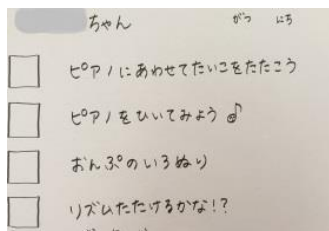 ちゃん がつ にち
ピアノにあわせてたいこをたたこう
ピアノをひいてみよう♪
おんぷのいろぬり
リズムたたけるかな!?